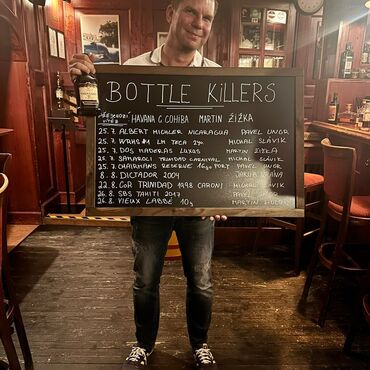 BOTTLE KILLERS
HAVANA C. COHIBA MARTIN ŽIŽKA
25.7. ALBERT MICHLER NICARAGUA PAVEL UNGR
25.7. LM TECA 24 MICHAL SLAVÍK
25.7. DOS MADERAS LUXUS MARTIN ŽIŽKA
25.7. SAMAROLI TRINIDAD CARNIVAL MICHAL SLAVÍK
25.7. CHAIRMANS RESERVE PORT PAVEL UNGR
8.8. DICTADOR 2004 JAKUB
22.8. CGR TRINIDAD 1998 CARONI MICHAL SLAVÍK
26.8. SBS TAHITI 2017 PAVEL UNGR
26.8. VIEUX LABBÉ 10y MARTIN